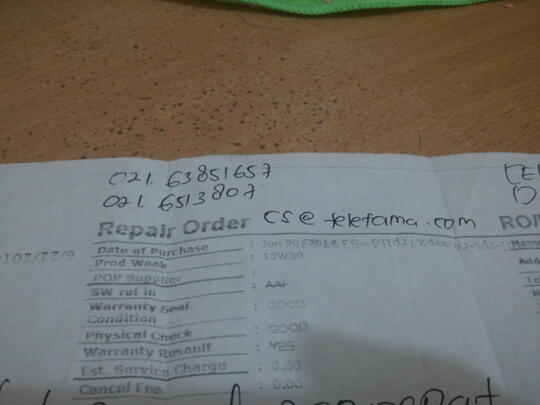 021. 63851657
021. 6513807
Repair Order cs@telefama.com RO/
Date of Purchase : Jun 20
Prod Week : 13W30
POP Supplier :
SW rel in : AAF
Warranty Seal : GOOD
Condition
Physical Check : GOOD
Warranty Resault : YES
Est. Service Charge : 0.00
Cancel Fee : 0.00